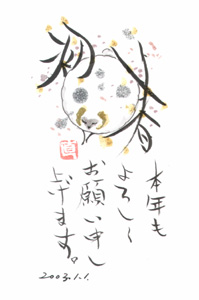 初春
直
本年も
よろしく
お願い申し
上げます。
2003.1.1.